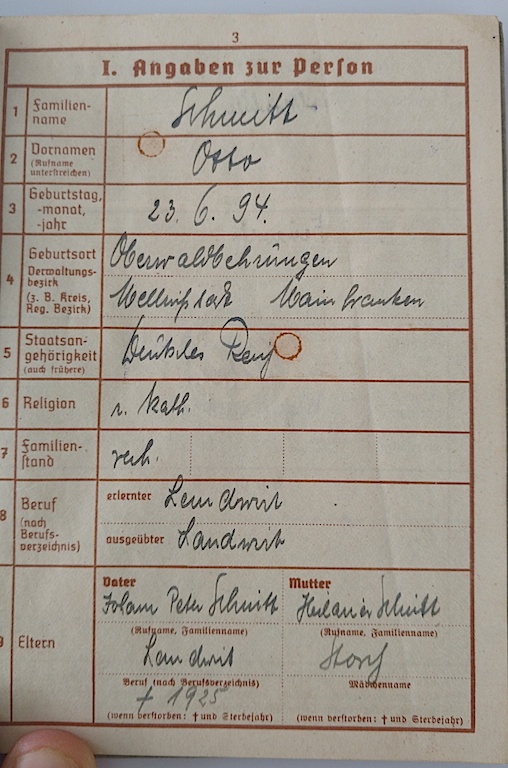 3
I. Angaben zur Person
1 Familien-
name
Schmitt
2 Vornamen
(Rufname
unterstreichen)
Otto
3 Geburtstag,
-monat,
-jahr
23. 6. 94.
4 Geburtsort
Verwaltungs-
bezirk
(z. B. Kreis,
Reg. Bezirk)
Oberwaldbehrüngen
Mellrichstadt Mainfranken
5 Staatsan-
gehörigkeit
(auch frühere)
Deutsches Reich
6 Religion
r. kath.
7 Familien-
stand
verh.
8 Beruf
(nach
Berufs-
verzeichnis)
erlernter Landwirt
ausgeübter Landwirt
9 Eltern
Vater
Johann Peter Schmitt
(Rufname, Familienname)
Landwirt
Beruf (nach Berufsverzeichnis)
† 1925
(wenn verstorben: † und Sterbejahr)
Mutter
Schmitt
(Rufname, Familienname)
Storch
Mädchenname
(wenn verstorben: † und Sterbejahr)